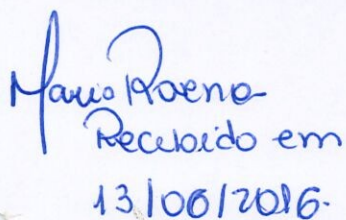 Mario Roena
Recebido em
13/06/2016.